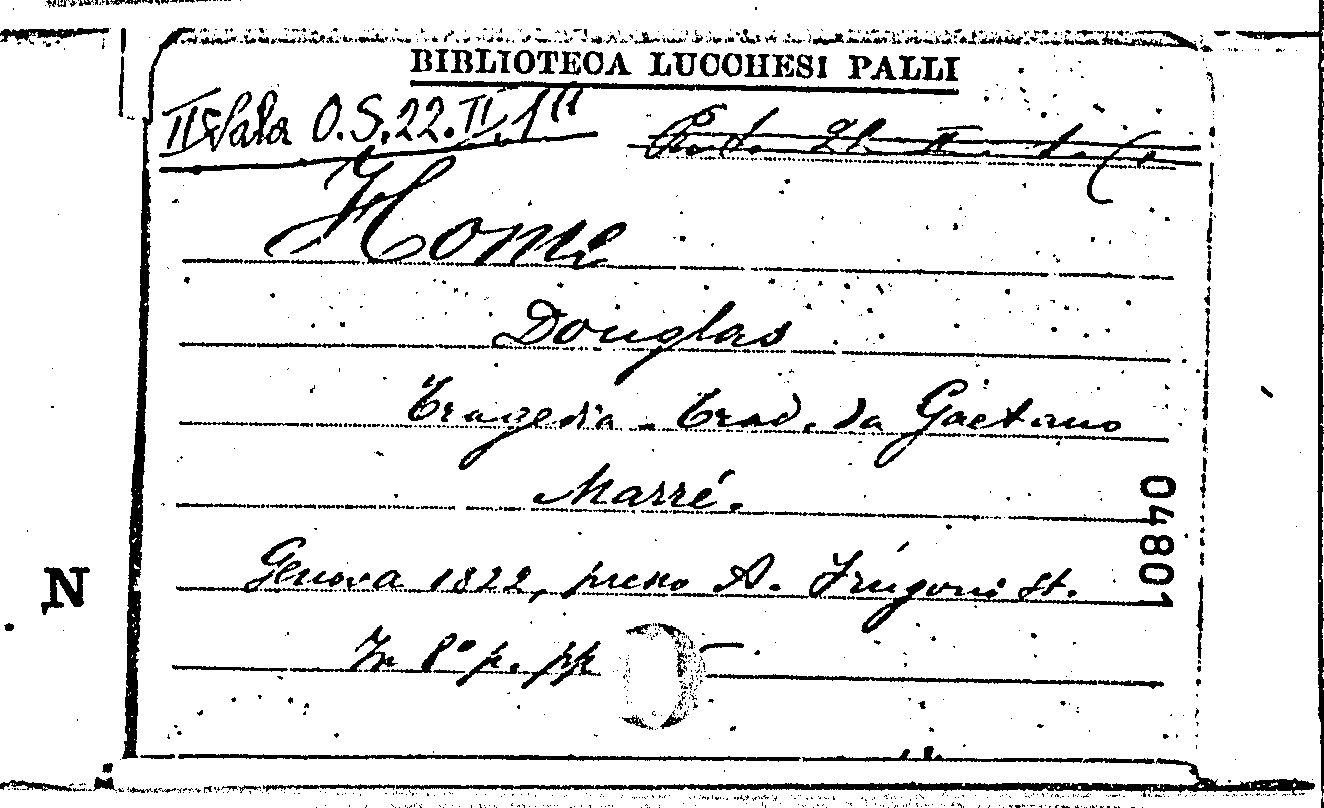 BIBLIOTECA LUCCHESI PALLI
II Sala O.S.22.II.1
Home
Douglas
Tragedia. Trad. da Gaetano
Marré.
Genova 1822, presso A. Frugoni St.
In 8° p. pp
04801
N